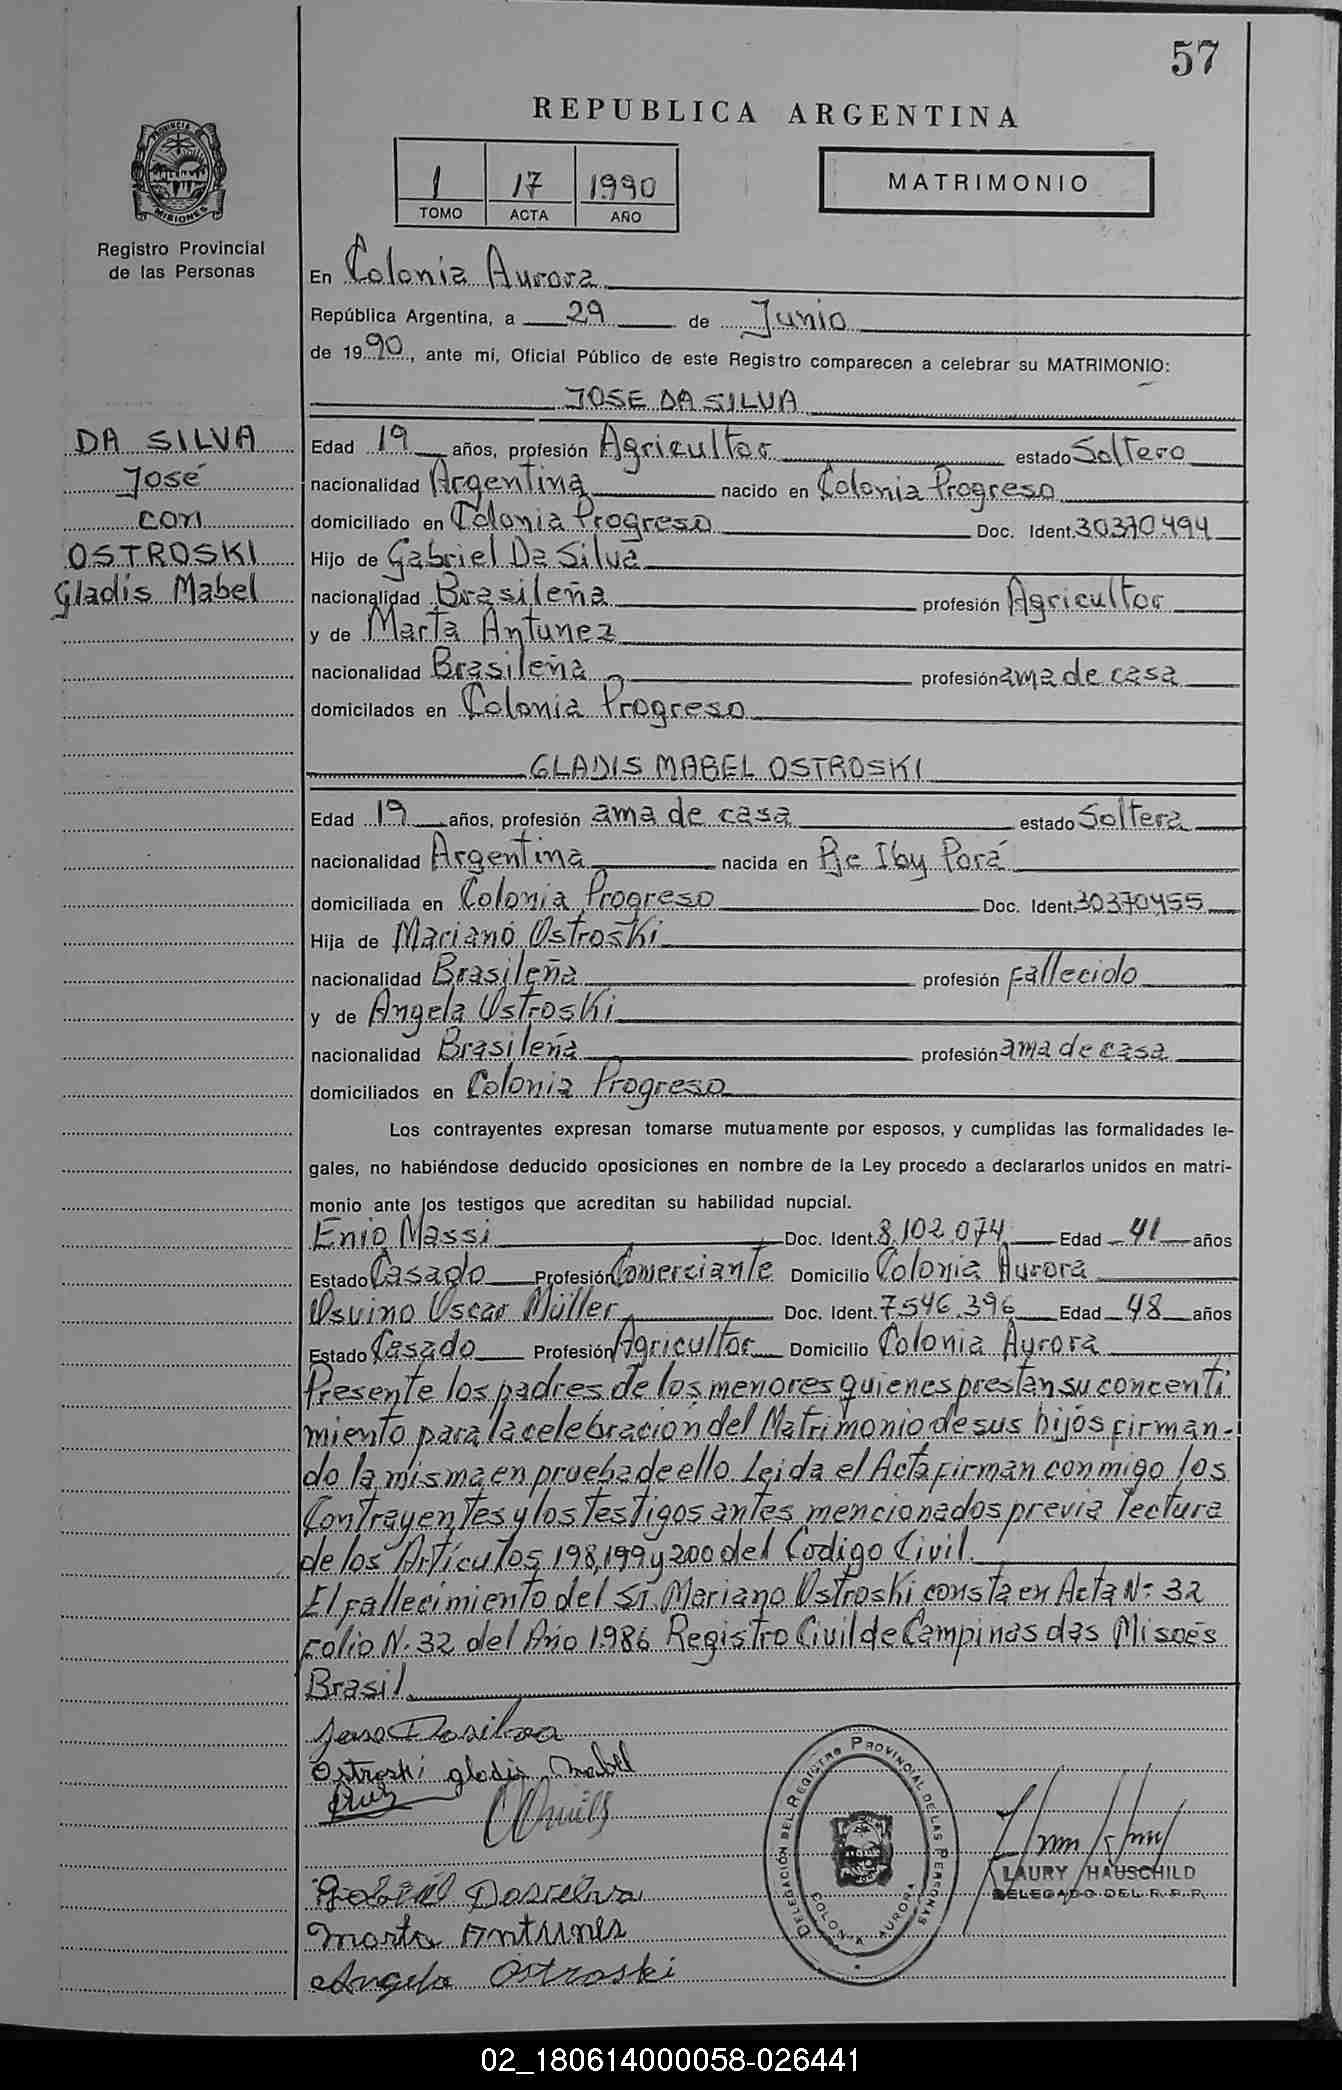 57
REPUBLICA ARGENTINA
1 17 1990
TOMO ACTA AÑO
MATRIMONIO
PROVINCIA DE MISIONES
Registro Provincial
de las Personas
En Colonia Aurora
República Argentina, a 29 de Junio
de 1990, ante mí, Oficial Público de este Registro comparecen a celebrar su MATRIMONIO:
JOSE DA SILVA
DA SILVA
José
con
OSTROSKI
Gladis Mabel
Edad 19 años, profesión Agricultor estado Soltero
nacionalidad Argentina nacido en Colonia Progreso
domiciliado en Colonia Progreso Doc. Ident. 30370.494
Hijo de Gabriel Da Silva
nacionalidad Brasileña profesión Agricultor
y de Marta Antunez
nacionalidad Brasileña profesión ama de casa
domicilados en Colonia Progreso
GLADIS MABEL OSTROSKI
Edad 19 años, profesión ama de casa estado Soltera
nacionalidad Argentina nacida en Pje Iby Porá
domiciliada en Colonia Progreso Doc. Ident. 30370455
Hija de Mariano Ostroski
nacionalidad Brasileña profesión fallecido
y de Angela Ostroski
nacionalidad Brasileña profesión ama de casa
domiciliados en Colonia Progreso
Los contrayentes expresan tomarse mutuamente por esposos, y cumplidas las formalidades le-
gales, no habiéndose deducido oposiciones en nombre de la Ley procedo a declararlos unidos en matri-
monio ante los testigos que acreditan su habilidad nupcial.
Enio Massi Doc. Ident. 8.102.074 Edad 41 años
Estado Casado Profesión Comerciante Domicilio Colonia Aurora
Osvino Oscar Müller Doc. Ident. 7.546.396 Edad 48 años
Estado Casado Profesión Agricultor Domicilio Colonia Aurora
Presente los padres de los menores quienes prestan su concenti-
miento para la celebración del Matrimonio de sus hijos firman-
do la misma en prueba de ello. Leida el Acta firman conmigo los
Contrayentes y los testigos antes mencionados previa lectura
de los Artículos 198, 199 y 200 del Codigo Civil.
El fallecimiento del Sr. Mariano Ostroski consta en Acta Nº 32
folio N. 32 del Año 1.986 Registro Civil de Campinas das Misoes
Brasil
Jose Dasilva
Ostroski gladis Mabel
Gabriel Dasielva
Marta Antunes
Angela Ostroski
DELEGACIÓN DEL REGISTRO PROVINCIAL DE LAS PERSONAS
COLONIA AURORA
LAURY HAUSCHILD
DELEGADO DEL R.P.P.
02_180614000058-026441